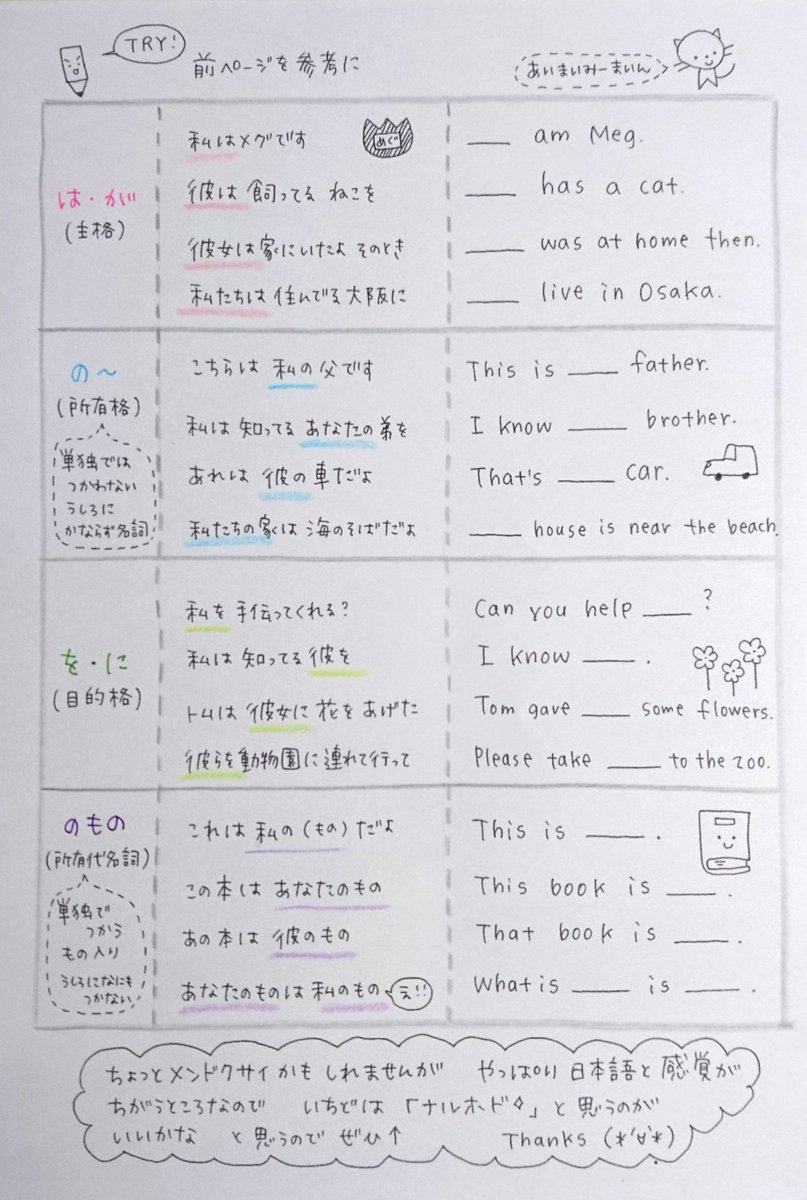 TRY!
前ページを参考に
あいまいみーまいん
は・が
(主格)
私はメグです
めぐ
___ am Meg.
彼は 飼ってる ねこを
___ has a cat.
彼女は家にいたよ そのとき
___ was at home then.
私たちは 住んでる 大阪に
___ live in Osaka.
の〜
(所有格)
単独では
つかわない
うしろに
かならず名詞
こちらは 私の 父です
This is ___ father.
私は 知ってる あなたの 弟を
I know ___ brother.
あれは 彼の 車だよ
That's ___ car.
私たちの家は 海のそばだよ
___ house is near the beach.
を・に
(目的格)
私を 手伝ってくれる?
Can you help ___ ?
私は 知ってる 彼を
I know ___ .
トムは 彼女に 花を あげた
Tom gave ___ some flowers.
彼らを動物園に連れて行って
Please take ___ to the zoo.
のもの
(所有代名詞)
単独で
つかう
もの入り
うしろになにも
つかない
これは 私の(もの)だよ
This is ___ .
この本は あなたのもの
This book is ___ .
あの本は 彼のもの
That book is ___ .
あなたのものは 私のもの
え!!
What is ___ is ___ .
ちょっとメンドクサイかも しれませんが やっぱり 日本語と 感覚が
ちがうところなので いちどは 「ナルホド〜」と 思うのが
いいかな と思うので ぜひ↑ Thanks (*'∀'*)